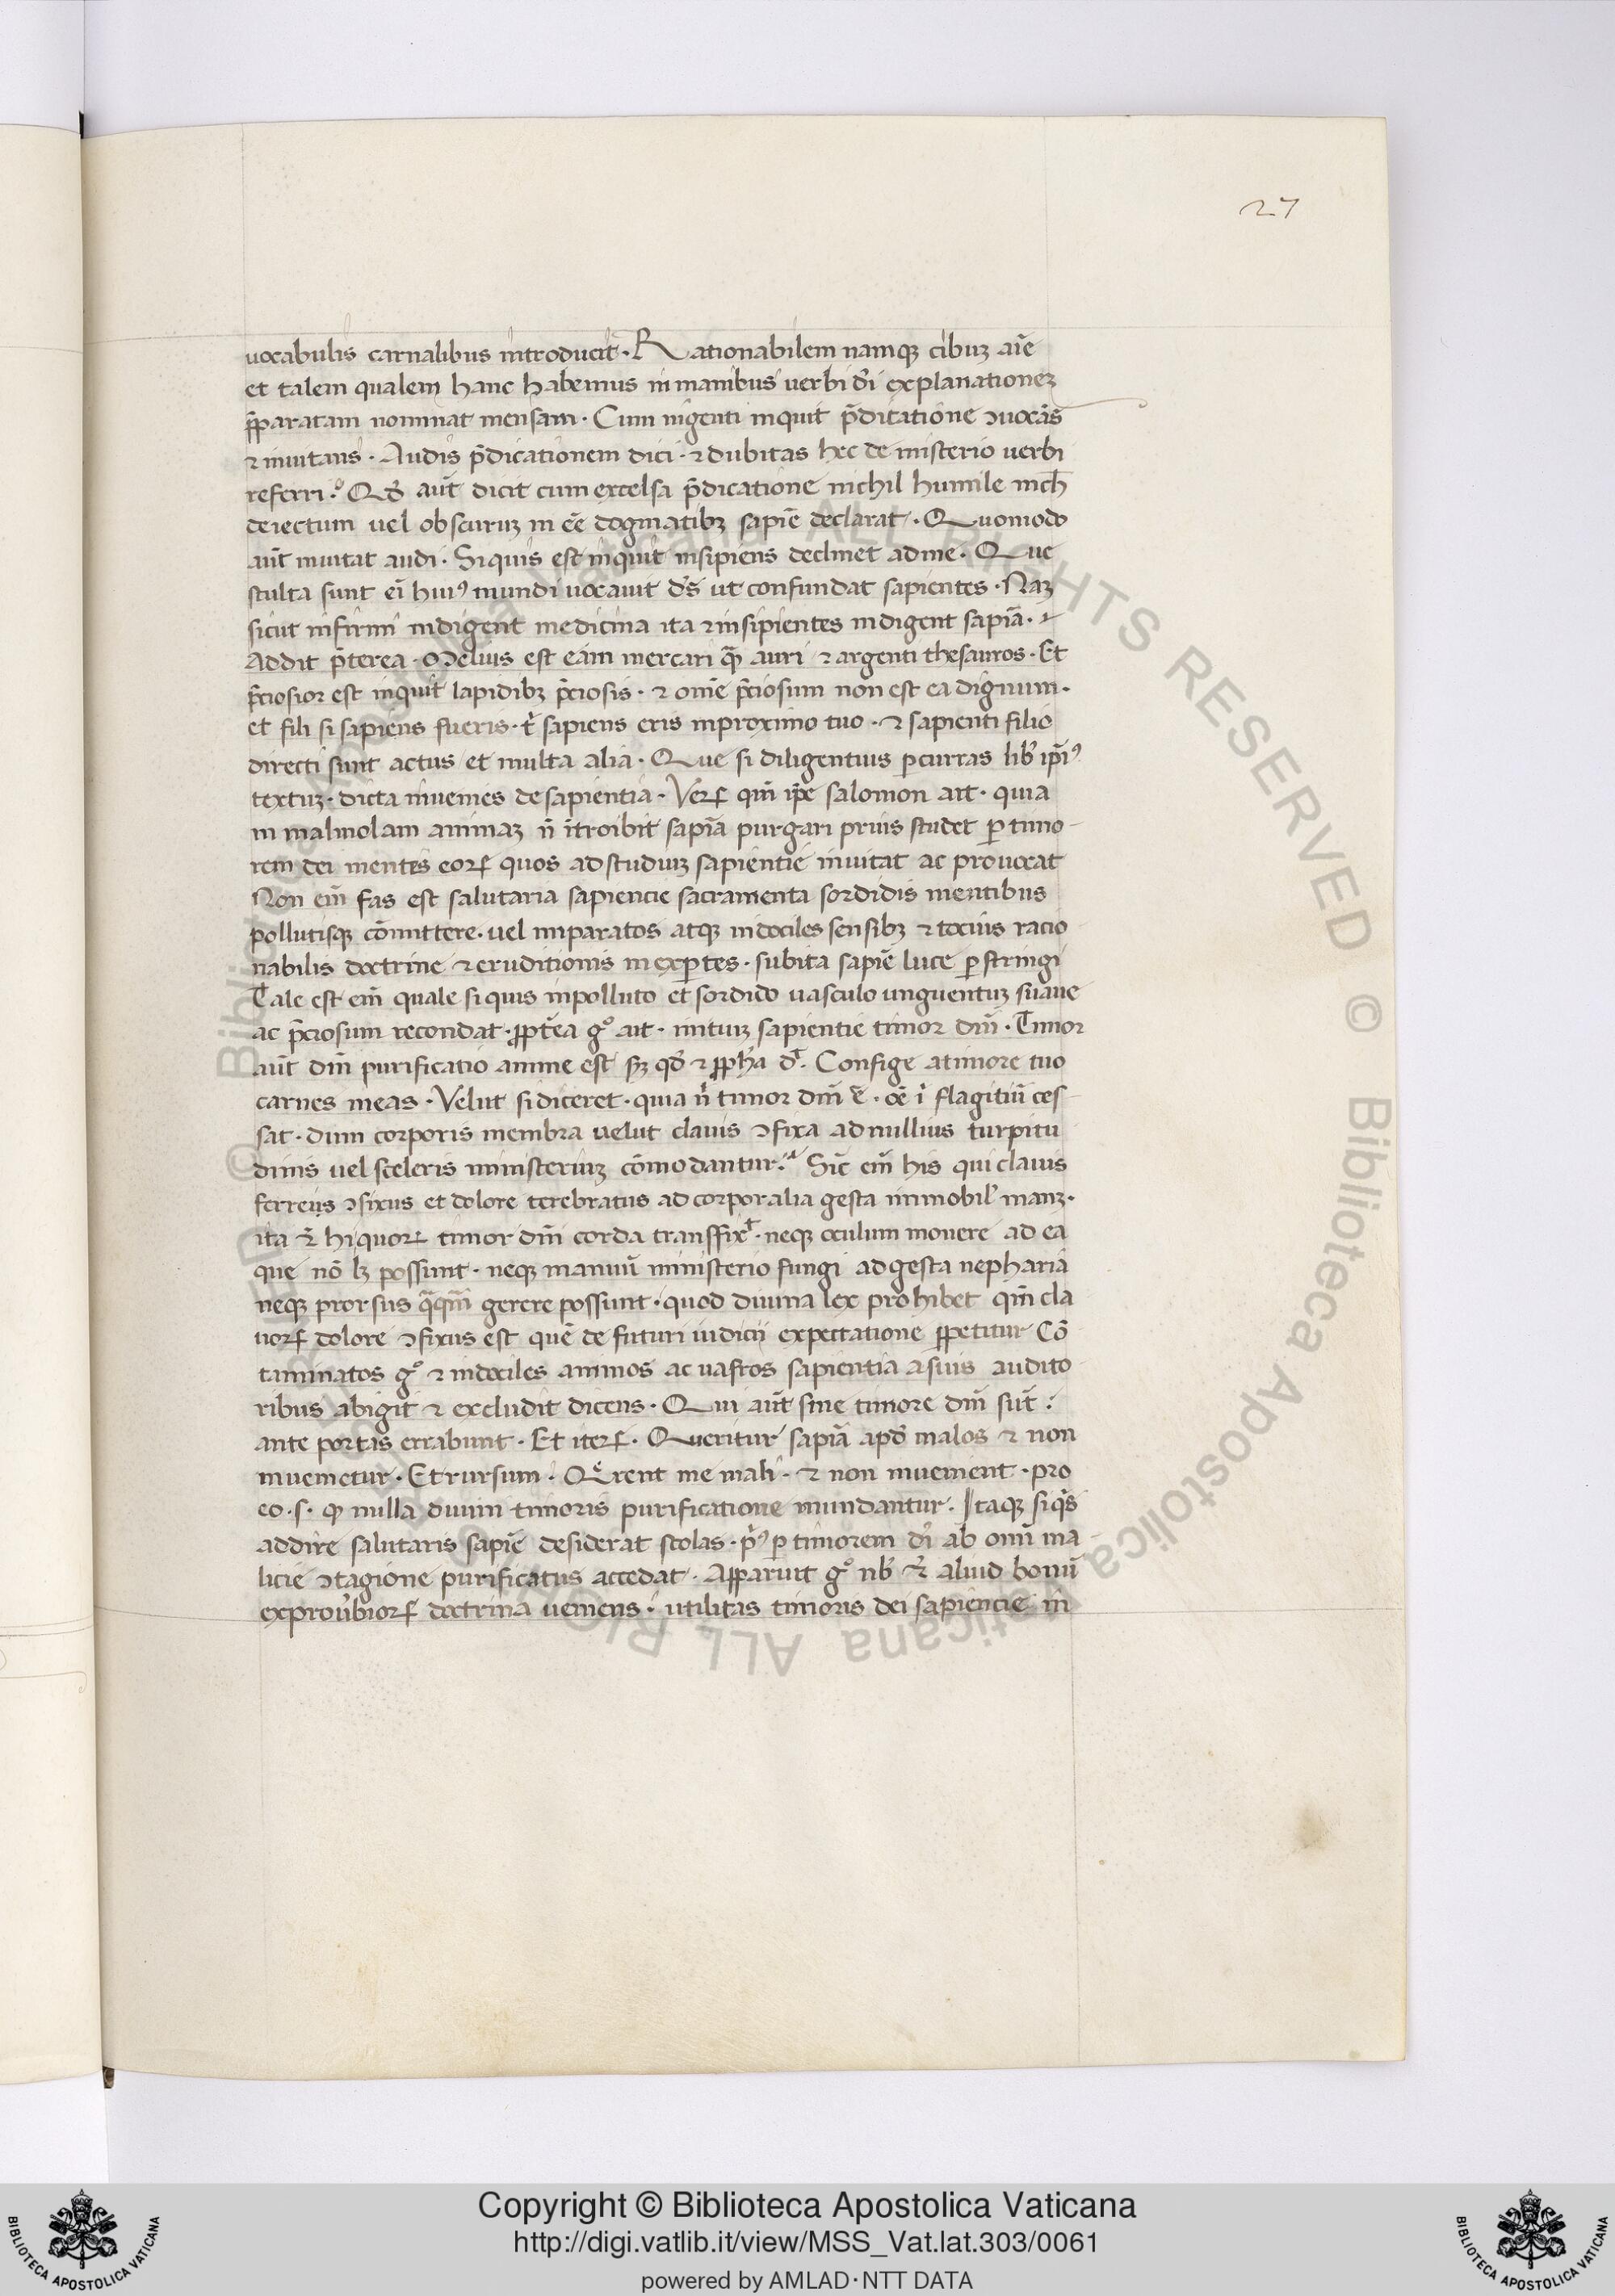 27
uocabulis carnalibus introducit · Rationabilem namqꝫ cibuꝫ aīe
et talem qualem hanc habemus in manibus uerbi dī explanationeꝫ
p̄paratam nominat mensam · Cum ingenti inquit p̄dicatione ↄuocās
⁊ inuitans · Audis p̄dicationem dici · ⁊ dubitas hec de misterio uerbi
referri · Qd̄ aūt dicit cum excelsa p̄dicatione nichil humile nich̄
deiectum uel obscuruꝫ in eē dogmatibꝫ sapiē declarat · Quomodo
aūt inuitat audi · Si quis est inquit insipiens declinet ad me · Que
stulta sunt eī huiꝰ mundi uocauit d̄s ut confundat sapientes · Naꝫ
sicut infirmi indigent medicina ita ⁊ insipientes indigent sapiā · ⁊
Addit p̄terea · Melius est eam mercari qꝫ auri ⁊ argenti thesauros · Et
p̄ciosior est inquit lapidibꝫ p̄ciosis · ⁊ om̄e p̄ciosum non est ea dignum ·
et fili si sapiens fueris · t̄ sapiens eris in proximo tuo · ⁊ sapienti filio
directi sunt actus et multa alia · Que si diligentius ꝑcurras lib̄ ip̄iꝰ
textuꝫ · dicta inuenies de sapientia · Veꝝ qm̄ ip̄e salomon ait · quia
in maliuolam animaꝫ n̄ ītroibit sapīa purgari prius studet ꝑ timo-
rem dei mentes eoꝝ quos ad studiuꝫ sapientie inuitat ac prouocat
Non em̄ fas est salutaria sapiencie sacramenta sordidis mentibus
pollutisqꝫ cōmittere · uel imparatos atqꝫ indociles sensibꝫ ⁊ tocius racio
nabilis doctrine ⁊ eruditionis inexꝑtes · subita sapiē luce ꝑstringi
Tale est em̄ quale si quis in polluto et sordido uasculo unguentuꝫ suaue
ac p̄ciosum recondat · ꝓpt̄ea gͦ ait · initiuꝫ sapientie timor dn̄i · Timor
aūt dn̄i purificatio anime est sꝫ qd̄ ⁊ ꝓph̄a d̄t · Confige a timore tuo
carnes meas · Velut si diceret · quia ū timor dn̄i ē · oē ī flagitiū ces-
sat · dum corporis membra uelut clauis ↄfixa ad nullius turpitu
dinis uel sceleris ministeriuꝫ cōmodantur · Sic em̄ his qui clauis
ferreis ↄfixus et dolore terebratus ad corporalia gesta immobil̄ manꝫ ·
ita ⁊ hi quoꝝ timor dn̄i corda transfixͭ · neqꝫ oculum mouere ad ea
que nō lꝫ possunt · neqꝫ manuū ministerio fungi ad gesta nepharia
neqꝫ prorsus q̄qm̄ gerere possunt · quod diuina lex prohibet qm̄ cla
uoꝝ dolore ↄfixus est quē de futuri iudicii expectatione ꝑpetitur Cō
taminatos gͦ ⁊ indociles animos ac uafros sapientia a suis audito
ribus abigit ⁊ excludit dicens · Qui aūt sine timore dn̄i sūt :
ante portas errabunt · Et iteꝝ · Queritur sapiā apd̄ malos ⁊ non
inuenietur · Et rursum · Q̄rent me mali · ⁊ non inuenient · pro
eo · s · ꝙ nulla diuini timoris purificatione mundantur · Itaqꝫ si q̄s
addire salutaris sapiē desiderat scolas · p̄ꝰ ꝑ timorem dī ab omī ma
licie ↄtagione purificatus accedat · Apparuit gͦ nb̄ ⁊ aliud bonū
ex prou̓bioꝝ doctrina ueniens · utilitas timoris dei sapiencie in
Copyright © Biblioteca Apostolica Vaticana
http://digi.vatlib.it/view/MSS_Vat.lat.303/0061
powered by AMLAD·NTT DATA